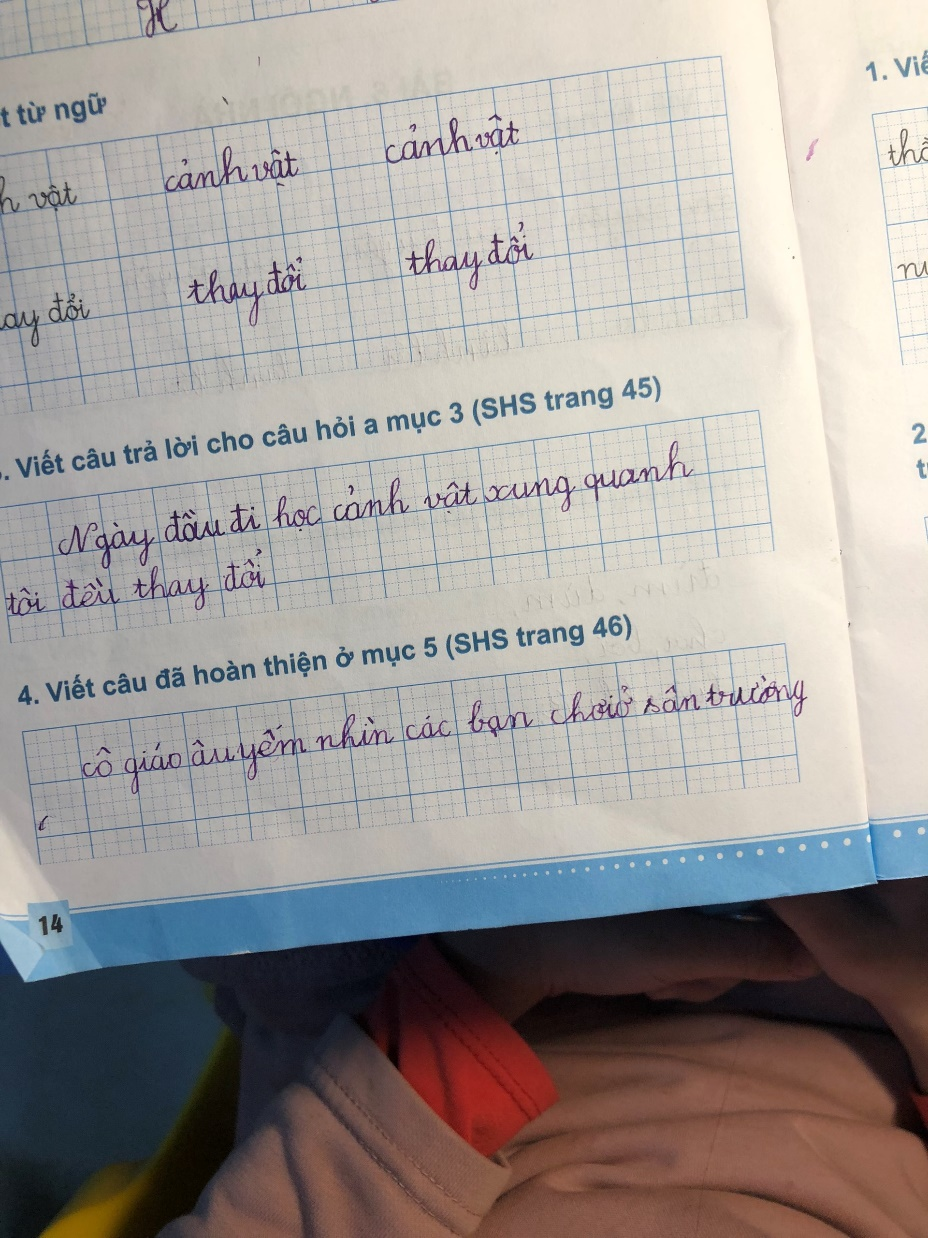 H
t từ ngữ
h vật cảnh vật cảnh vật
ay đổi thay đổi thay đổi
. Viết câu trả lời cho câu hỏi a mục 3 (SHS trang 45)
Ngày đầu đi học cảnh vật xung quanh
tôi đều thay đổi
4. Viết câu đã hoàn thiện ở mục 5 (SHS trang 46)
cô giáo âu yếm nhìn các bạn chơi ở sân trường
14
1. Viế
2
t